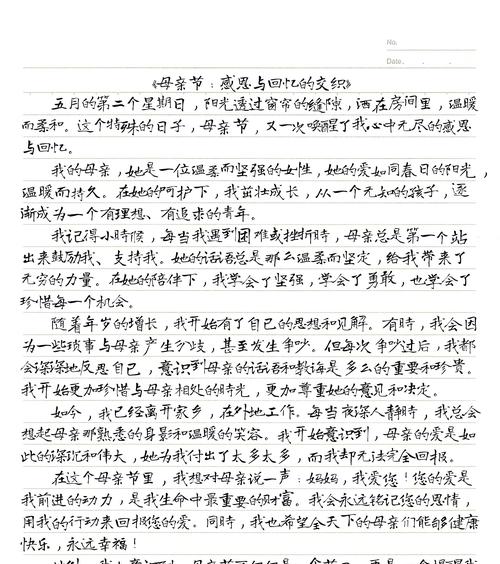 No.
Date.
《母亲节：感恩与回忆的交织》
五月的第二个星期日，阳光透过窗帘的缝隙，洒在房间里，温暖
而柔和。这个特殊的日子，母亲节，又一次唤醒了我心中无尽的感恩
与回忆。
我的母亲，她是一位温柔而坚强的女性，她的爱如同春日的阳光，
温暖而持久。在她的呵护下，我茁壮成长，从一个无知的孩子，逐
渐成为一个有理想、有追求的青年。
我记得小时候，每当我遇到困难或挫折时，母亲总是第一个站
出来鼓励我、支持我。她的话语总是那么温柔而坚定，给我带来了
无穷的力量。在她的陪伴下，我学会了坚强，学会了勇敢，也学会了
珍惜每一个机会。
随着年岁的增长，我开始有了自己的思想和见解。有时，我会因
为一些琐事与母亲产生分歧，甚至发生争吵。但每次争吵过后，我都
会深深地反思自己，意识到母亲的话语和教诲是多么的重要和珍贵。
我开始更加珍惜与母亲相处的时光，更加尊重她的意见和决定。
如今，我已经离开家乡，在外地工作。每当夜深人静时，我总会
想起母亲那熟悉的身影和温暖的笑容。我开始意识到，母亲的爱是如
此的深沉和伟大，她为我付出了太多太多，而我却无法完全回报。
在这个母亲节里，我想对母亲说一声：妈妈，我爱您！您的爱是
我前进的动力，是我生命中最重要的财富。我会永远铭记您的恩情，
用我的行动来回报您的爱。同时，我也希望全天下的母亲们能够健康
快乐，永远幸福！